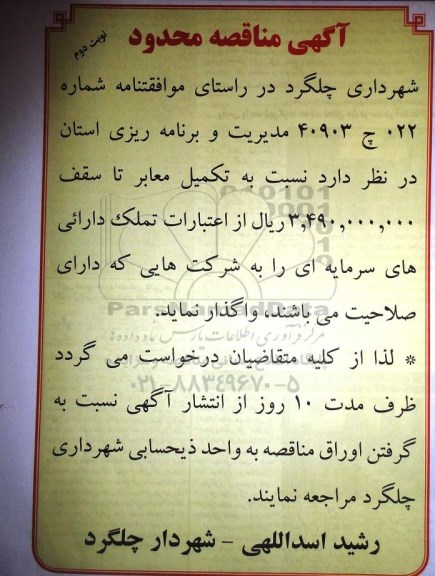 آگهی مناقصه محدود
نوبت دوم
شهرداری چلگرد در راستای موافقتنامه شماره
۰۲۲ چ ۴۰۹۰۳ مدیریت و برنامه ریزی استان
در نظر دارد نسبت به تکمیل معابر تا سقف
۳,۴۹۰,۰۰۰,۰۰۰ ریال از اعتبارات تملک دارائی
های سرمایه ای را به شرکت هایی که دارای
صلاحیت می باشند، واگذار نماید.
* لذا از کلیه متقاضیان درخواست می گردد
ظرف مدت ۱۰ روز از انتشار آگهی نسبت به
گرفتن اوراق مناقصه به واحد ذیحسابی شهرداری
چلگرد مراجعه نمایند.
رشید اسداللهی - شهردار چلگرد
ParsNamadData
مرکز فرآوری اطلاعات پارس نماد داده ها
۰۲۱-۸۸۳۴۹۶۷۰-۵